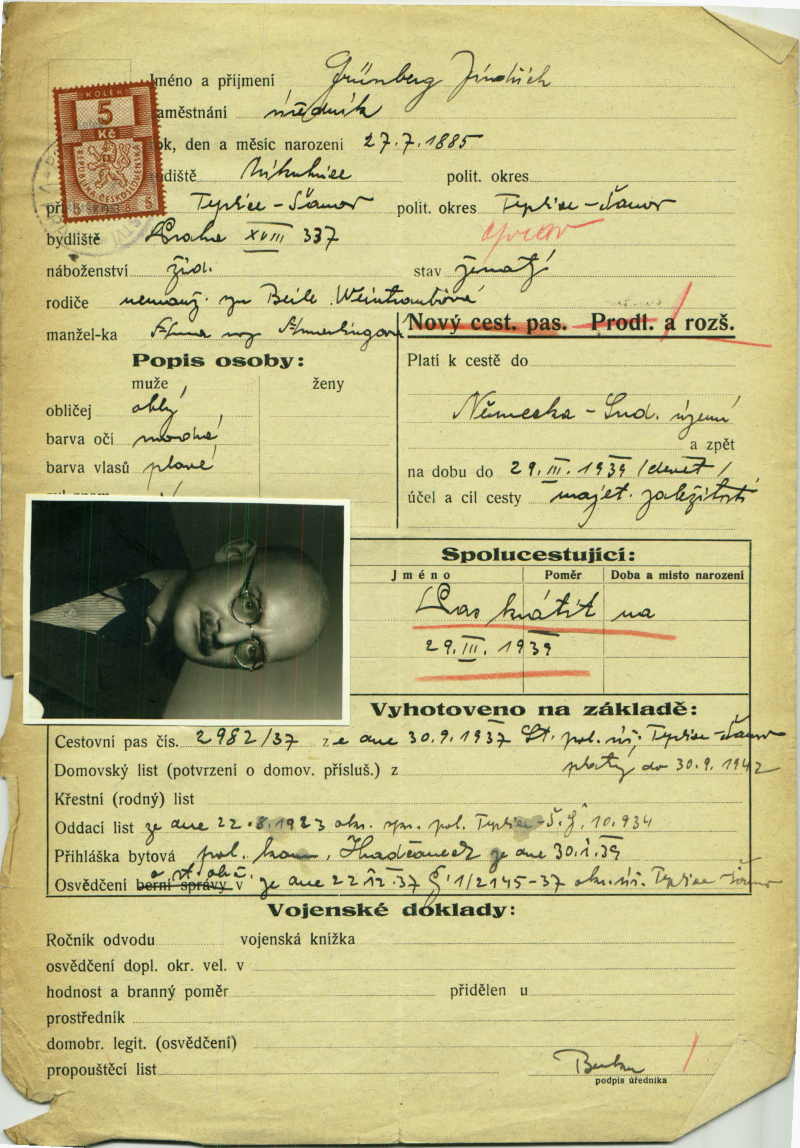 KOLEK
5
Kč
REPUBLIKA ČESKOSLOVENSKÁ
Jméno a příjmení Grünberg Jindřich
zaměstnání úředník
rok, den a měsíc narození 27.7.1885
Mikulvice polit. okres
Teplice-Šanov polit. okres Teplice-Šanov
bydliště Praha XVIII 337
náboženství žid. stav ženatý
rodiče nemanž. syn Beile Weintraubové
manžel-ka Anna roz.
Nový cest. pas. Prodl. a rozš.
Popis osoby:
muže ženy
obličej oblý
barva očí modré
barva vlasů plavé
Platí k cestě do
Německa - Sud. území
a zpět
na dobu do 29. III. 1939 /devět/
účel a cíl cesty majet. záležitosti
Spolucestující:
Jméno Poměr Doba a místo narození
Pas krátit na
29. III. 1939
Vyhotoveno na základě:
Cestovní pas čís. 2982/37 z e dne 30.9.1937 St. pol. úř. Teplice-Šanov
platný do 30.9.1942
Domovský list (potvrzení o domov. přísluš.) z
Křestní (rodný) list
Oddací list ze dne 22.8.1923 okr. spr. pol. Teplice-Š. 10.934
Přihláška bytová pol. kom. Hradčanech ze dne 30.I.39
Osvědčení berní správy v o st. obč. ze dne 22.IX.37 1/2145-37 okr. úř. Teplice-Šanov
Vojenské doklady:
Ročník odvodu vojenská knížka
osvědčení dopl. okr. vel. v
hodnost a branný poměr přidělen u
prostředník
domobr. legit. (osvědčení)
propouštěcí list
podpis úředníka